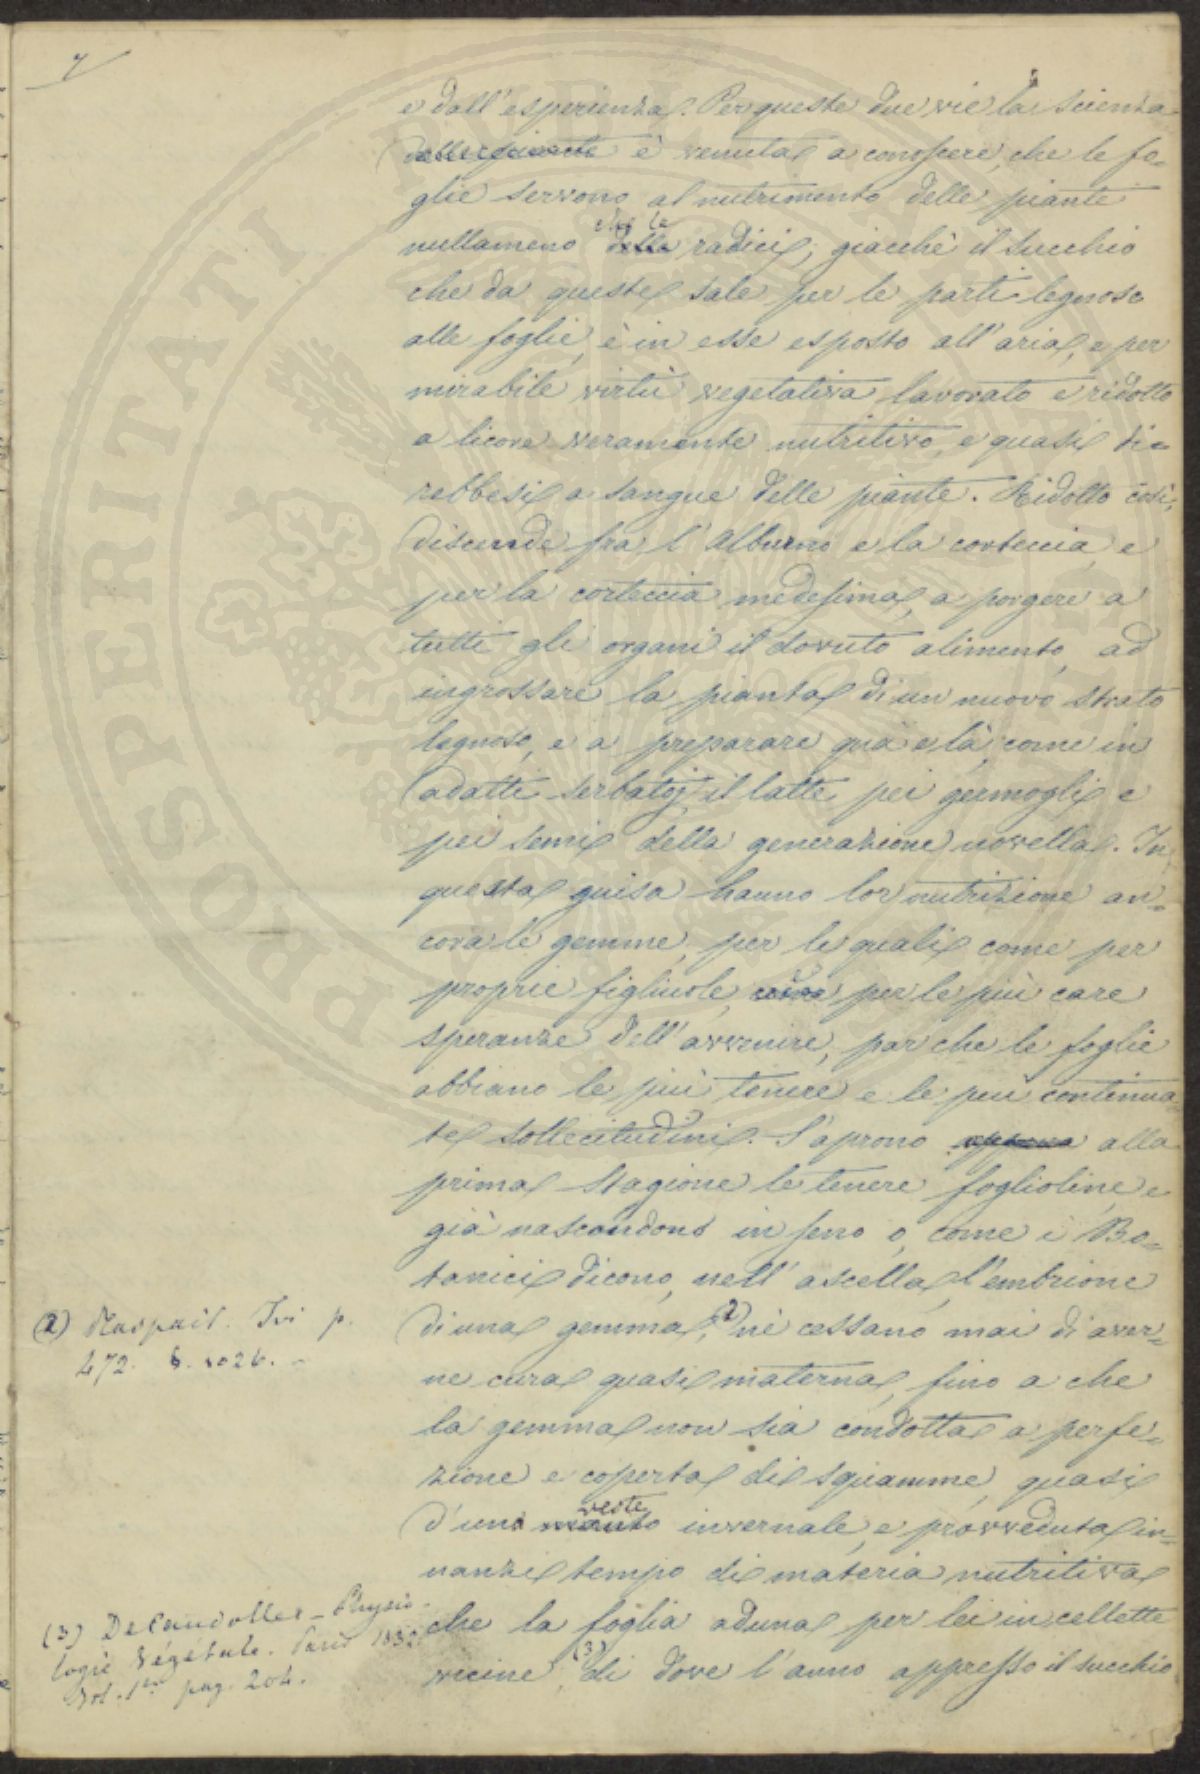 7
e dall'esperienza. Per queste due vie la scienza
delle piante è venuta a conoscere, che le fo-
glie servono al nutrimento delle piante
che le
nullameno delle radici, giacchè il succhio
che da queste sale per le parti legnose
alle foglie, è in esse esposto all'aria, e per
mirabile virtù vegetativa lavorato e ridotto
a licore veramente nutritivo, e quasi di-
rebbesi a sangue delle piante. Ridotto così,
discende fra l'Alburno e la corteccia, e
per la corteccia medesima, a porgere a
tutti gli organi il dovuto alimento, ad
ingrossare la pianta di un nuovo strato
legnoso, e a preparare quà e là, come in
adatti serbatoj, il latte pei germogli e
pei semi della generazione novella. In
questa guisa hanno lor nutrizione an-
cora le gemme, per le quali come per
proprie figliuole, per le più care
speranze dell'avvenire, par che le foglie
abbiano le più tenere e le più continua
te sollecitudini. S'aprono appena alla
prima stagione le tenere foglioline, e
già nascondono in seno o, come i Bo-
tanici dicono, nell'ascella, l'embrione
di una gemma, (2) nè cessano mai di aver-
ne cura quasi materna, fino a che
la gemma non sia condotta a perfe-
zione e coperta di squamme, quasi
veste
d'una manto invernale, e provveduta in-
nanzi tempo di materia nutritiva
che la foglia aduna per lei in cellette
vicine, (3) di dove l'anno appresso il succhio
(2) Raspail. Ivi p.
472. §. 1026.
(3) DeCandolles - Physio-
logie Végétale. Paris 1832.
Vol. 1er pag. 204.
PROSPERITATI PUBLICAE